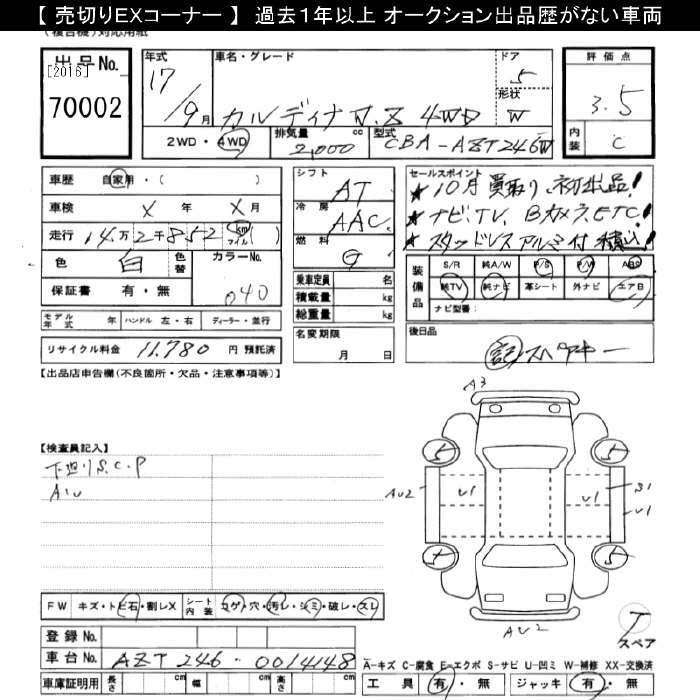 【 売切りEXコーナー 】 過去1年以上 オークション出品歴がない車両
(複合機)対応用紙
出品No.
[2016]
70002
年式
17/9月
車名・グレード
カルディナ W.Z 4WD
ドア
5
形状
W
2WD・4WD
排気量
2,000
cc
型式
CBA-AZT246W
評価点
3.5
内装
C
車歴 自家用・( )
車検 X 年 X 月
走行 14万2千852 km マイル ( )
色 白
色替
カラーNo.
040
保証書 有・無
モデル年式 年
ハンドル 左・右
ディーラー・並行
リサイクル料金 11,780 円 預託済
シフト
AT
冷房
AAC
燃料
G
乗車定員 名
積載量 kg
総重量 kg
名変期限
月 日
セールスポイント
★10月買取り、初出品!
★ナビ、TV、Bカメラ、ETC!
★スタッドレスアルミ付積込!
装備品
S/R 純A/W P/S P/W ABS
純TV 純ナビ 革シート 外ナビ エアB
ナビ型番:
後日品
記 スペアキー
【出品店申告欄(不良箇所・欠品・注意事項等)】
【検査員記入】
下廻りS.C.P
A1U
FW キズ・トビ石・割レX
シート内装 コゲ・穴・汚レ・シミ・破レ・スレ
登録 No.
車台 No. AZT246-0014148
車庫証明用 長さ cm 幅 cm 高さ cm
A3
5
5
AU2
U1
U1
B1
U1
5
5
AU2
T
スペア
A-キズ C-腐食 E-エクボ S-サビ U-凹ミ W-補修 XX-交換済
工具 有・無 ジャッキ 有・無